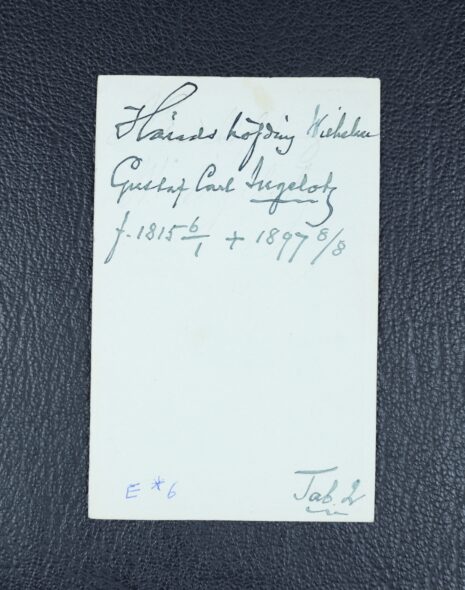 Häradshöfding Wilhelm
Gustaf Carl Ingelotz
f. 1815 6/1 + 1897 8/8
E * 6
Tab. 2